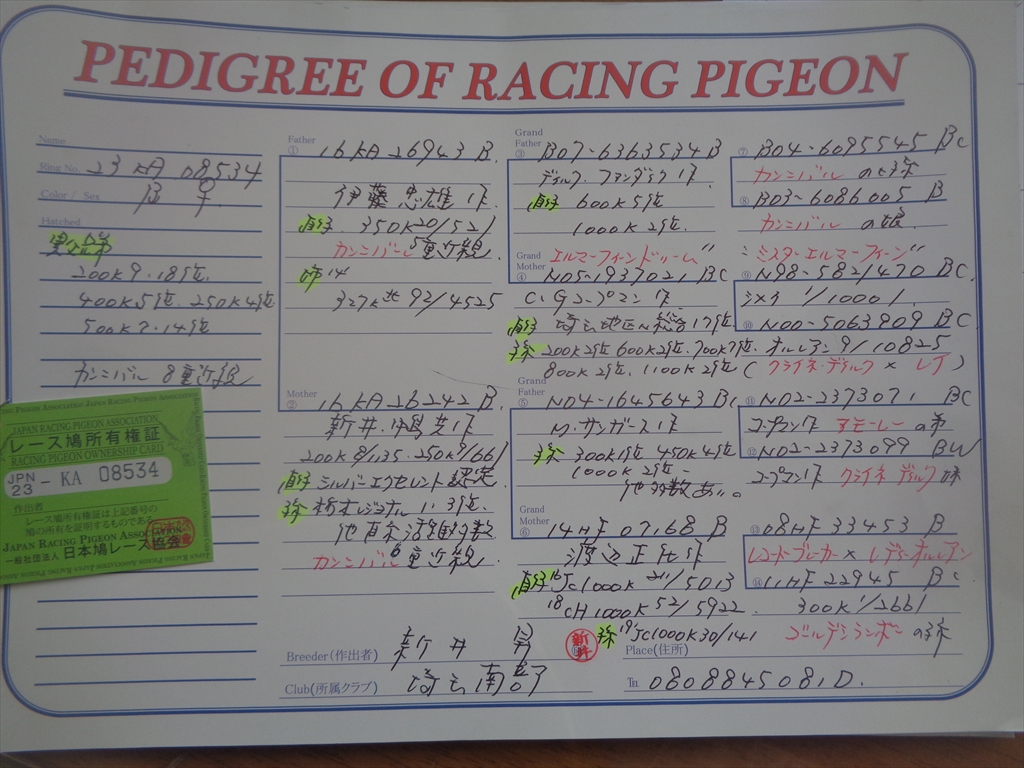 PEDIGREE OF RACING PIGEON
Name
Ring No. 23 KA 08534
Color / Sex B ♀
Hatched
200K9・18位
400K5位・250K4位
500K7・14位
カンニバル 8重近親
JAPAN RACING PIGEON ASSOCIATION
レース鳩所有権証
RACING PIGEON OWNERSHIP CARD
JPN 23 - KA 08534
作出者
レース鳩所有権証は上記番号の
鳩の所有を証明するものである
JAPAN RACING PIGEON ASSOCIATION
一般社団法人 日本鳩レース協会
Father
① 16KA26943 B
伊藤忠雄作
直仔 350K20/521
カンニバール 5重近親
327K 92/4525
Mother
② 16KA26242 B
200K8/1135・250K9/661
直仔 シルバーエクセレント認定
孫 栃木レジョナル 1・3位
カンニバル6重近親
Breeder(作出者) 新井
Club(所属クラブ) 埼玉南部
Grand Father
③ B07-6363534 B
ディルク・ファンダイク作
直仔 600K5位
1000K2位
エルマーフィーンドリーム
Grand Mother
④ N05-1937021 BC
C・Gコープマン作
直仔 埼玉地区N総合17位
孫 200K2位 600K2位・700K7位・オルレアン9/10825
800K2位・1100K2位(クライネ・ディルク × レイ)
Grand Father
⑤ N04-1645643 BC
M・サンガース作
孫 300K1位 450K4位
1000K2位
他多数あり。
Grand Mother
⑥ 14HF07168 B
渡辺正化作
直仔 16JC1000K 211/5013
18CH1000K52/5922
孫 19JC1000K30/141
⑦ B04-6095545 BC
カンニバルの孫
⑧ B03-6086005 B
カンニバルの娘
"ミスターエルマーフィーン"
⑨ N98-5821470 BC
1/1000
⑩ N00-5063909 BC
⑪ N02-2373071 BC
コープマン作 アモーレーの弟
⑫ N02-2373099 BW
コープマン作 クライネディルク 妹
⑬ 08HF33453 B
レコードブレーカー × レディオルレアン
⑭ 11HF22945 BC
300K 1/2661
ゴールデンランボーの孫
Place(住所)
Tel. 08088450810